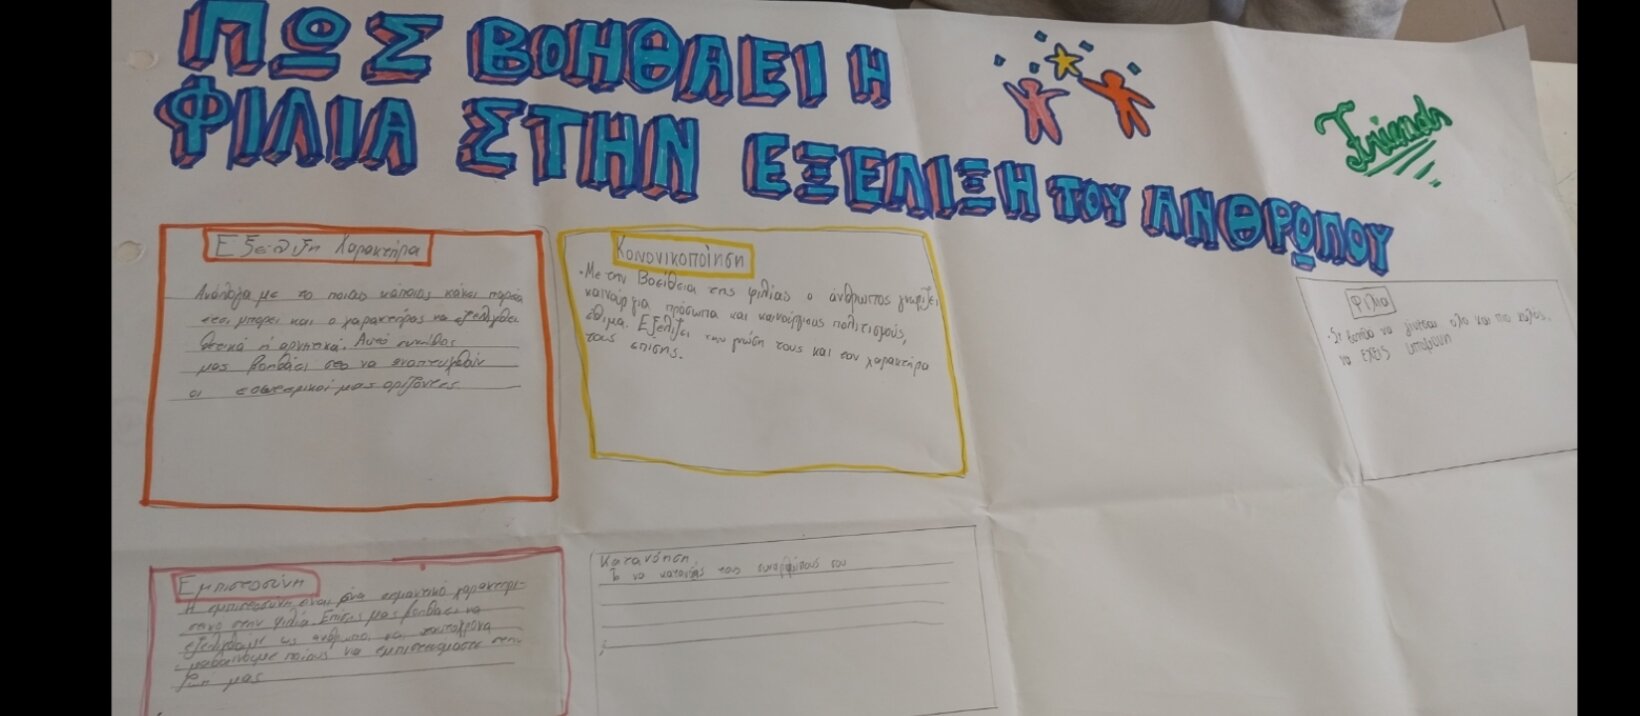 ΠΩΣ ΒΟΗΘΑΕΙ Η
ΦΙΛΙΑ ΣΤΗΝ ΕΞΕΛΙΞΗ ΤΟΥ ΑΝΘΡΩΠΟΥ
Friends
Εξέλιξη Χαρακτήρα
Ανάλογα με το ποιας κάποιος κάνει παρέα
έτσι μπορεί και ο χαρακτήρας να εξελιχθεί
θετικά ή αρνητικά. Αυτό
μας βοηθάει στο να αναπτυχθούν
οι εσωτερικοί μας ορίζοντες
Κοινονικοποίηση
•Με την βοείθεια της φιλίας ο άνθρωπος γνωρίζει
καινούργια πρόσωπα και καινούργιους πολιτισμούς,
έθιμα. Εξελίζει την γνώση τους και τον χαρακτήρα
τους επίσης.
Φιλία
•Σε βοηθά να γίνεσαι όλο και πιο καλός.
να έχεις υπομονή
Εμπιστοσύνη
Η εμπιστοσύνη είναι ένα σημαντικό χαρακτηρι-
στικό στην φιλία. Επίσης μας βοηθάει να
εξελιχθούμε ως άνθρωποι και ταυτόχρονα
μαθαίνουμε ποιους να εμπιστευόμαστε στην
ζωή μας
Κατανόηση
Το να κατανοείς τους συνανθρώπους σου